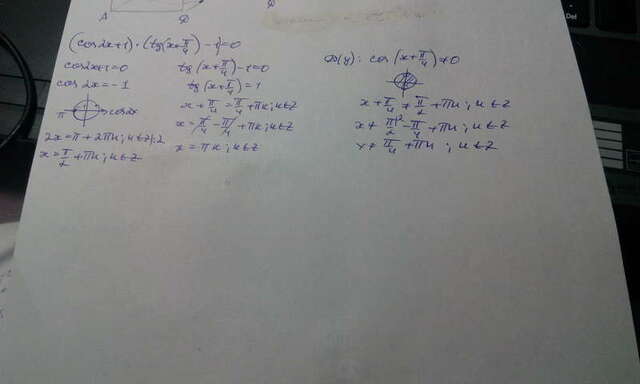 A D
(cos2x+1)·(tg(x+π/4)-1)=0
cos2x+1=0
cos2x=-1
π cos2x
2x=π+2πk; k∈Z|:2
x=π/2+πk; k∈Z
tg(x+π/4)-1=0
tg(x+π/4)=1
x+π/4=π/4+πk; k∈Z
x=π/4-π/4+πk; k∈Z
x=πk; k∈Z
D(y): cos(x+π/4)≠0
x+π/4≠π/2+πk; k∈Z
x≠π/2-π/4+πk; k∈Z
x≠π/4+πk; k∈Z
Del